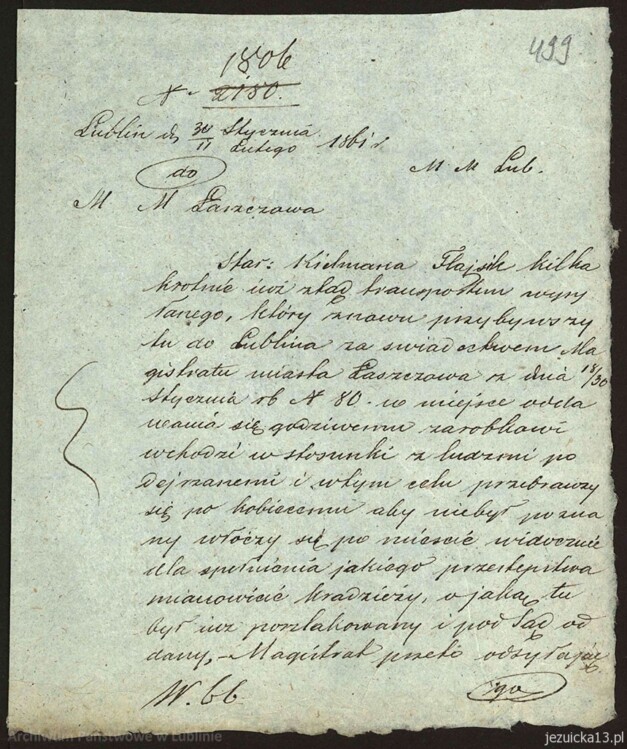 499
1806
N 2180.
Lublin d. 30/11 Stycznia/Lutego 1861 r
do
M. M. Lub.
M M Łaszczowa
Star: Kielmana Flajsik kilka
krotnie już ztąd transportem wysy
łanego, który znowu przybywszy
tu do Lublina za świadectwem Ma
gistratu miasta Łaszczowa z dnia 18/30
Stycznia rb N 80. w miejsce odda
wania się godziwemu zarobkowi
wchodzi w stosunki z ludzmi po
dejrzanemi i w tym celu przebrawszy
się po kobiecemu aby niebył pozna
ny włóczy się po mieście widocznie
dla spełnienia jakiego przestępstwa
mianowicie kradzieży, o jaką tu
był już poszlakowany i pod Sąd od
dany, - Magistrat przeto odsyłając
W. 66
igo
Archiwum Państwowe w Lublinie
jezuicka13.pl